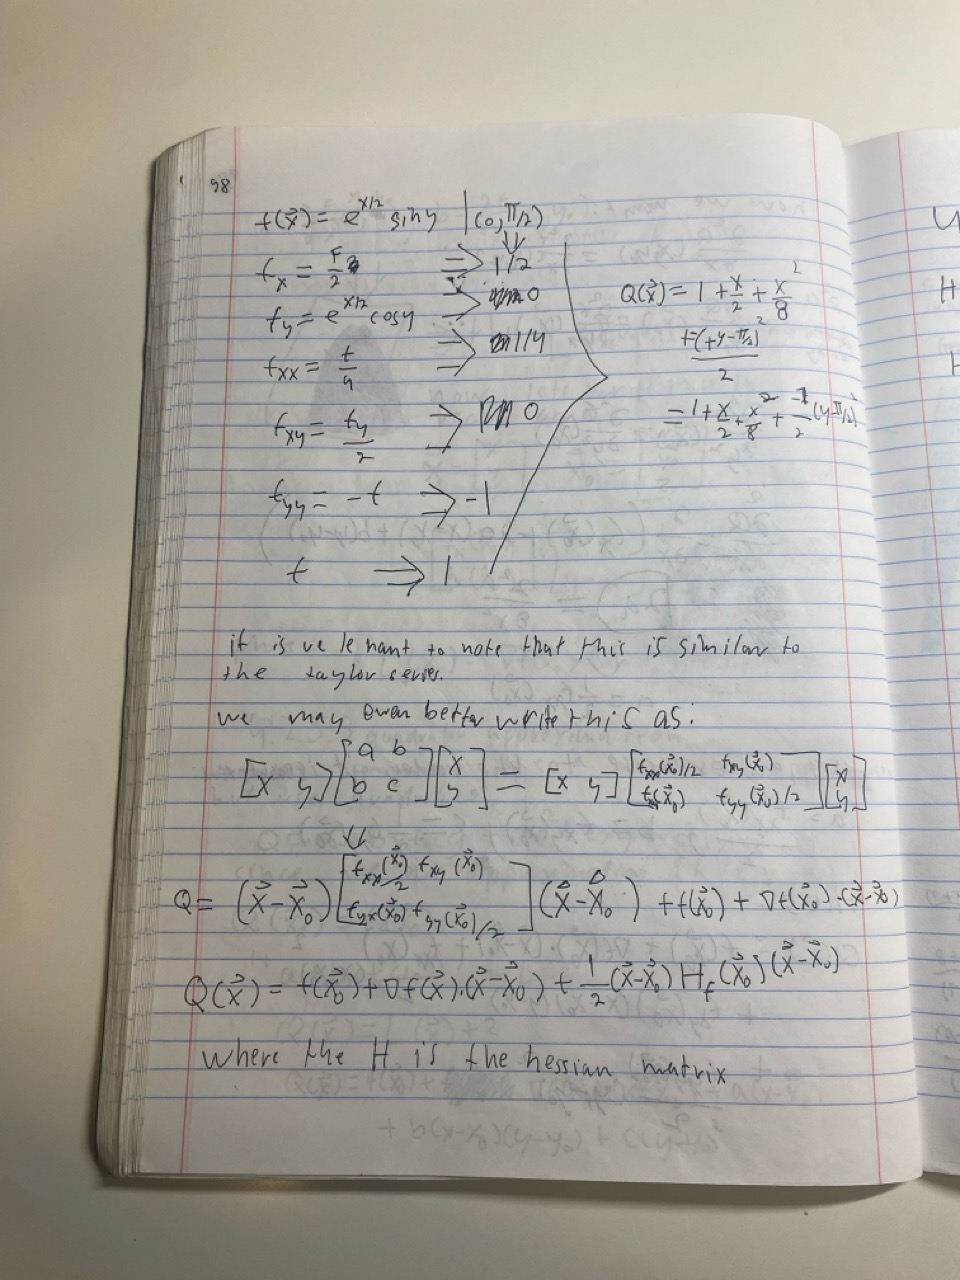 98
f(x⃗) = e^{x/2} siny |(0, π/2)
⇓
f_x = F/2 ⇒ 1/2
f_y = e^{x/2} cosy ⇒ 0
f_xx = f/4 ⇒ 1/4
f_xy = f_y/2 ⇒ 0
f_yy = -f ⇒ -1
f ⇒ 1
Q(x⃗) = 1 + x/2 + x²/8
+-(+y-π/2)²/2
= 1 + x/2 + x²/8 + -1/2 (y-π/2)²
it is relenant to note that this is similar to
the taylor series.
we may even better write this as:
[x y] [a b; b c] [x; y] = [x y] [f_xx(x⃗₀)/2 f_xy(x⃗₀); f(x⃗₀) f_yy(x⃗₀)/2] [x; y]
⇓
Q = (x⃗-x⃗₀) [f_xx(x⃗₀)/2 f_xy(x⃗₀); f_yx(x⃗₀) f_yy(x⃗₀)/2] (x⃗-x⃗₀) + f(x⃗₀) + ∇f(x⃗₀)·(x⃗-x⃗₀)
Q(x⃗) = f(x⃗₀) + ∇f(x⃗)·(x⃗-x⃗₀) + 1/2 (x⃗-x⃗₀) H_f(x⃗₀)(x⃗-x⃗₀)
where the H is the hessian matrix
H